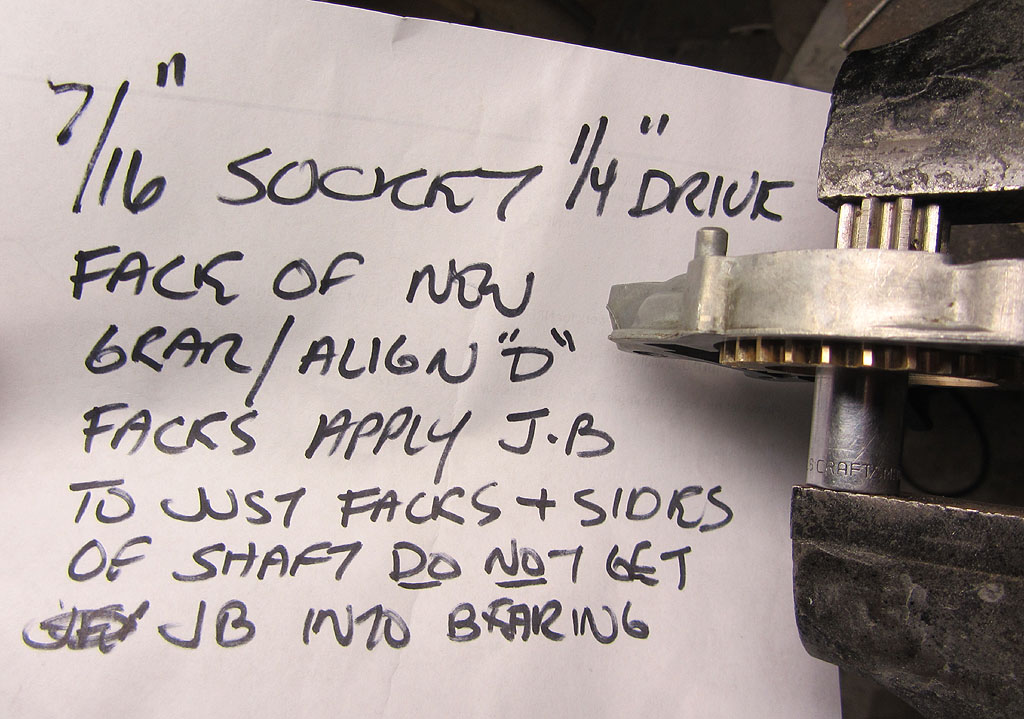 7/16" SOCKET 1/4" DRIVE
FACE OF NEW
GEAR/ALIGN "D"
FACES APPLY J.B
TO JUST FACES + SIDES
OF SHAFT DO NOT GET
JB INTO BEARING
CRAFTSM